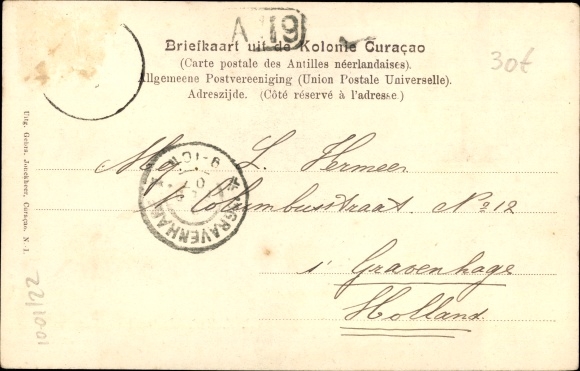 A 19
Briefkaart uit de Kolonie Curaçao
(Carte postale des Antilles néerlandaises).
Allgemeene Postvereeniging (Union Postale Universelle).
Adreszijde. (Côté réservé à l'adresse.)
30t
L. Vermeer
Columbusstraat No 12
s' Gravenhage
Holland
GRAVENHAGE
Uitg. Gebrs. Jonckheer, Curaçao, N. 1.
1001/22